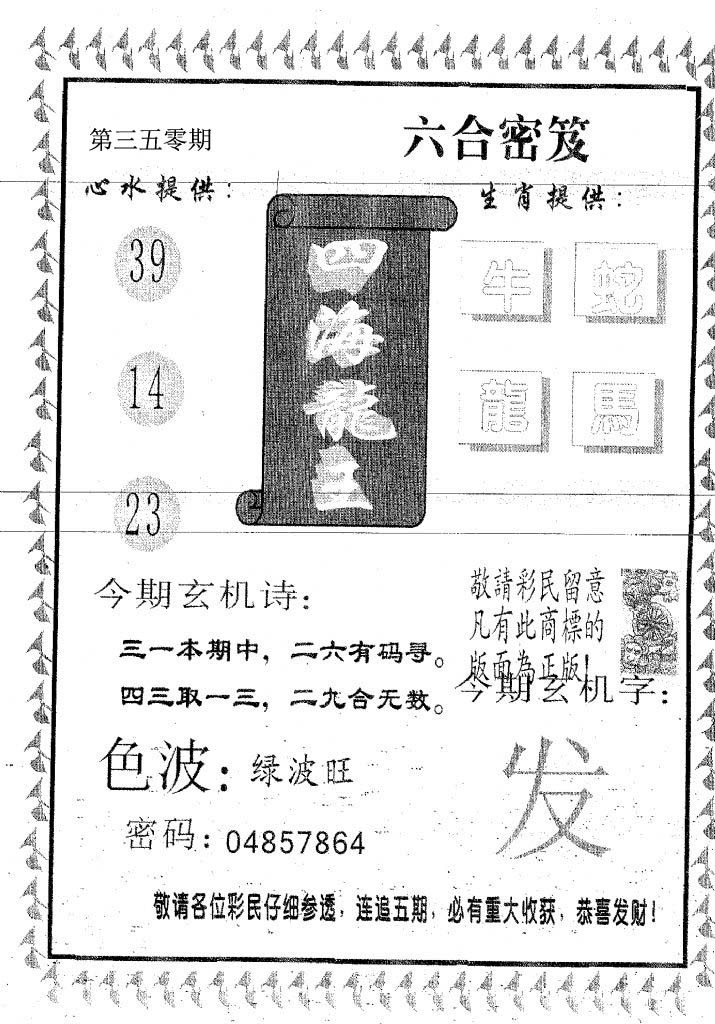 第三五零期
六合密笈
心水提供：
生肖提供：
39
14
23
四
海
龍
王
牛 蛇
龍 馬
今期玄机诗：
三一本期中，二六有码寻。
四三取一三，二九合无数。
敬請彩民留意
凡有此商標的
版面為正版！
今期玄机字：
发
色波：绿波旺
密码：04857864
敬请各位彩民仔细参透，连追五期，必有重大收获，恭喜发财！